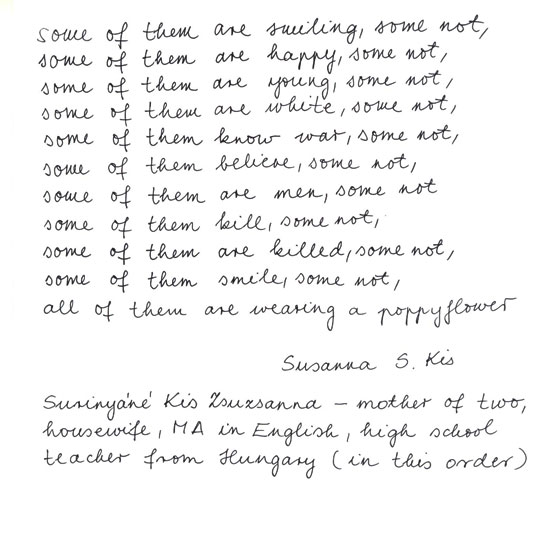 some of them are smiling, some not,
some of them are happy, some not,
some of them are young, some not,
some of them are white, some not,
some of them know war, some not,
some of them believe, some not,
some of them are men, some not
some of them kill, some not,
some of them are killed, some not,
some of them smile, some not,
all of them are wearing a poppyflower
Susanna S. Kis
Surinyáné Kis Zsuzsanna – mother of two,
housewife, MA in English, high school
teacher from Hungary (in this order)